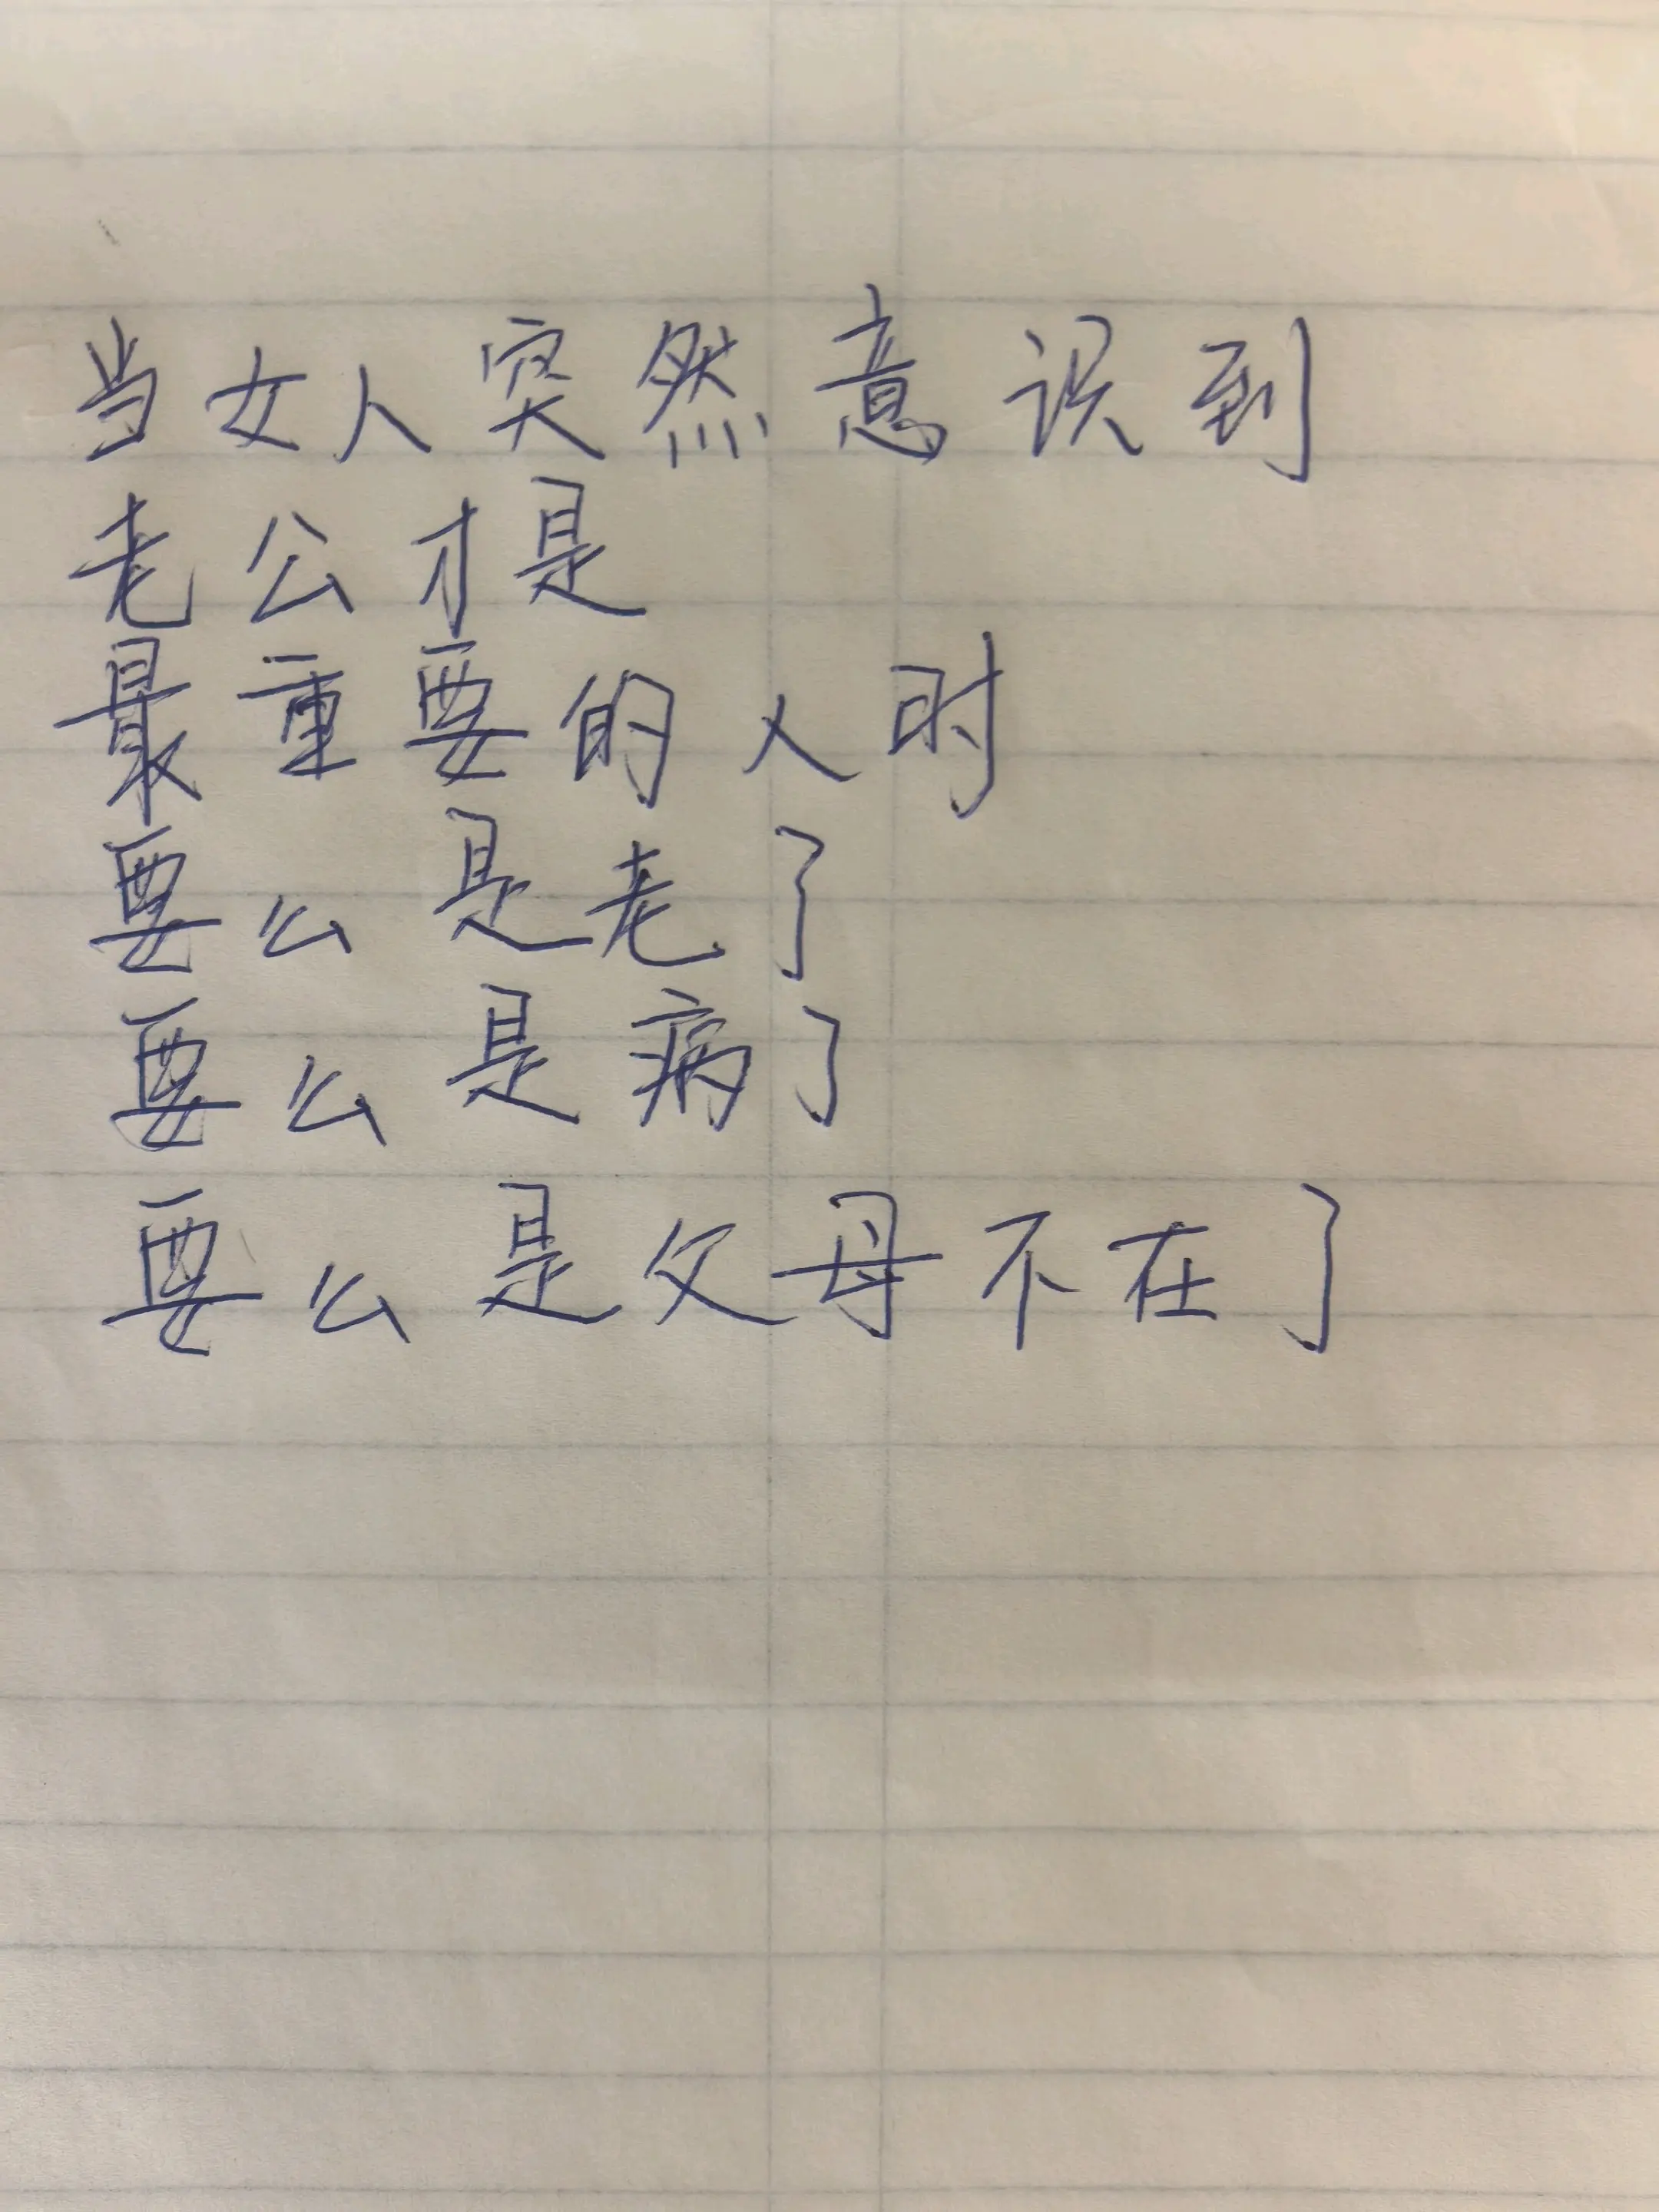 当女人突然意识到
老公才是
最重要的人时
要么是老了
要么是病了
要么是父母不在了